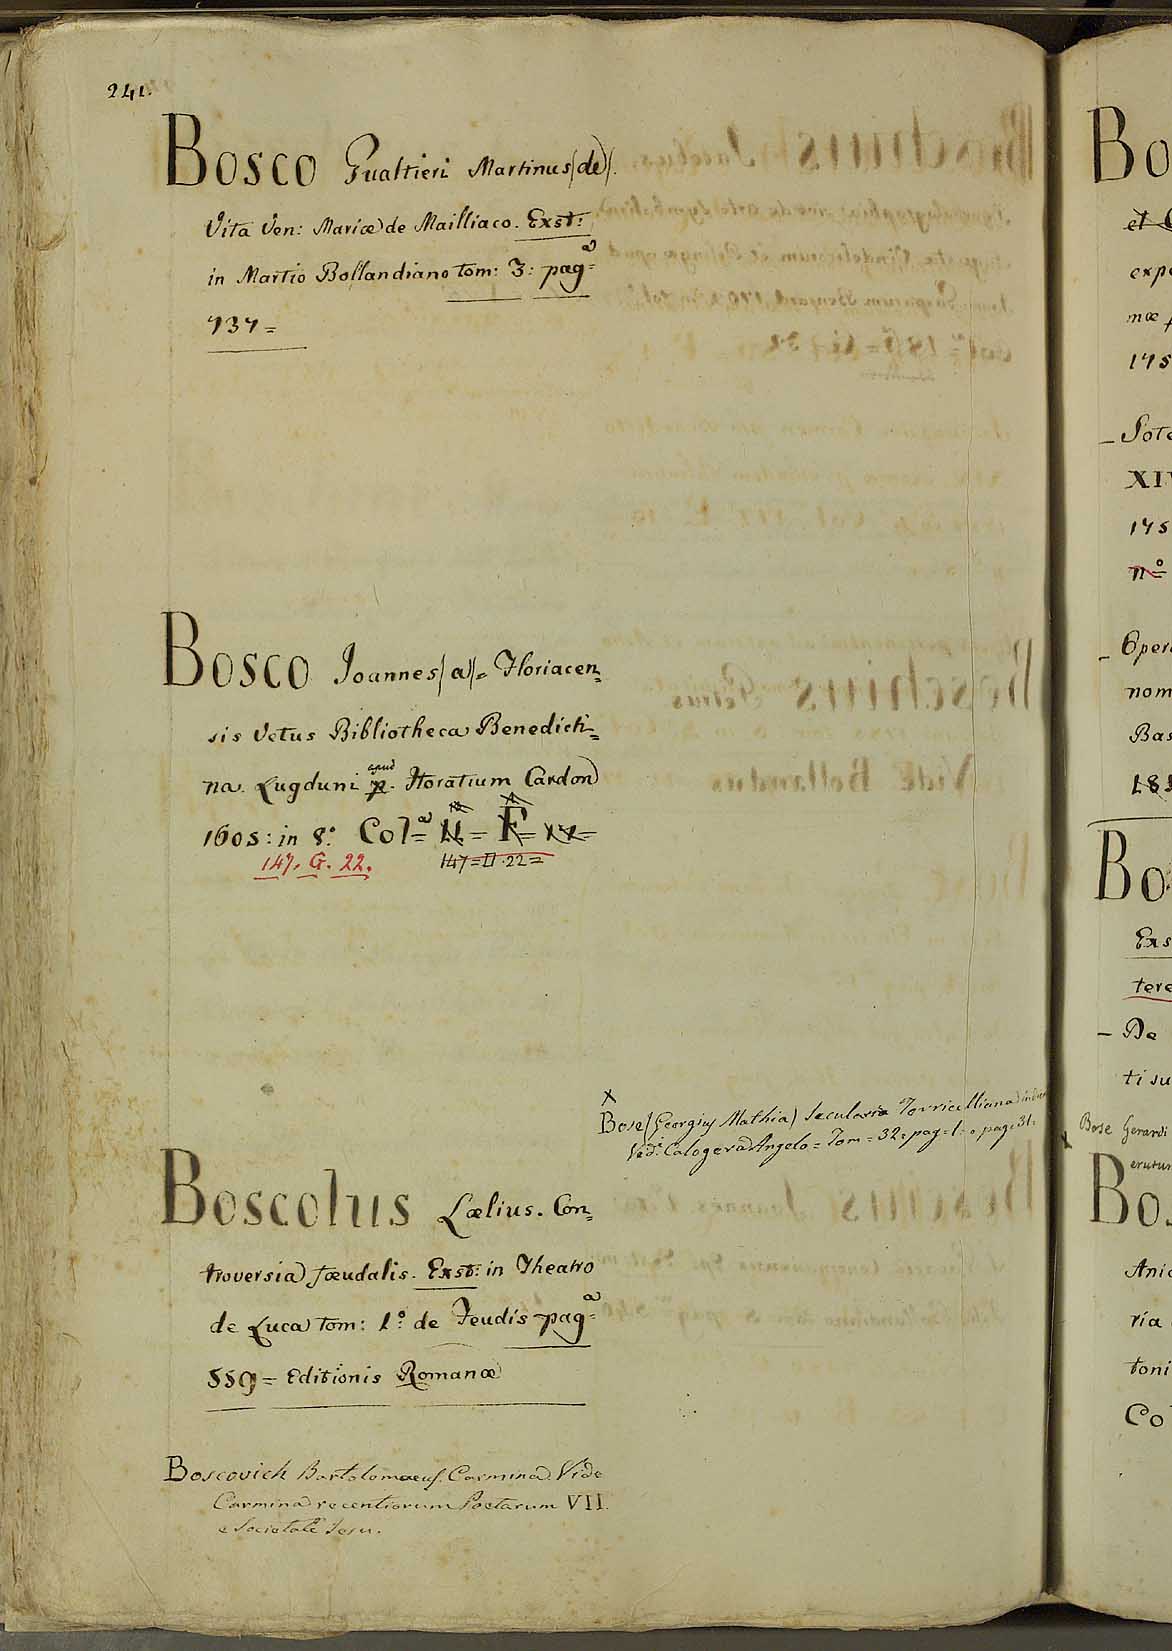 241.
Bosco Gualtieri Martinus (de).
Vita Ven: Mariæ de Mailliaco. Exst:
in Martio Bollandiano tom: 3: pag.ª
737=
Bosco Joannes (a) = Floriacen=
sis Vetus Bibliotheca Benedicti=
na. Lugduni apud p. Horatium Cardon
1605: in 8.° Col.ª
147. G. 22. 147=II.22=
X
Bose (Georgius Mathia) Secularia Torricelliana
Vedi Calogera Angelo = Tom = 32: pag = 1: a pag: 31:
Boscolus Lælius. Con=
troversia fœudalis. Exst: in Theatro
de Luca tom: 1.° de Feudis pag.ª
559 = Editionis Romanæ
Boscovich Bartolomaeus. Carmina. Vide
Carmina recentiorum Poetarum VII.
e Societate Jesu.
Bo
et
expo
næ
175
_ Sote
XIV
175
n.°
_ Opera
nom
Bas
Bo
Exs
tere
_ De
ti su
Bose Gerardi
X
Bos
Anic
ria
toni
Co